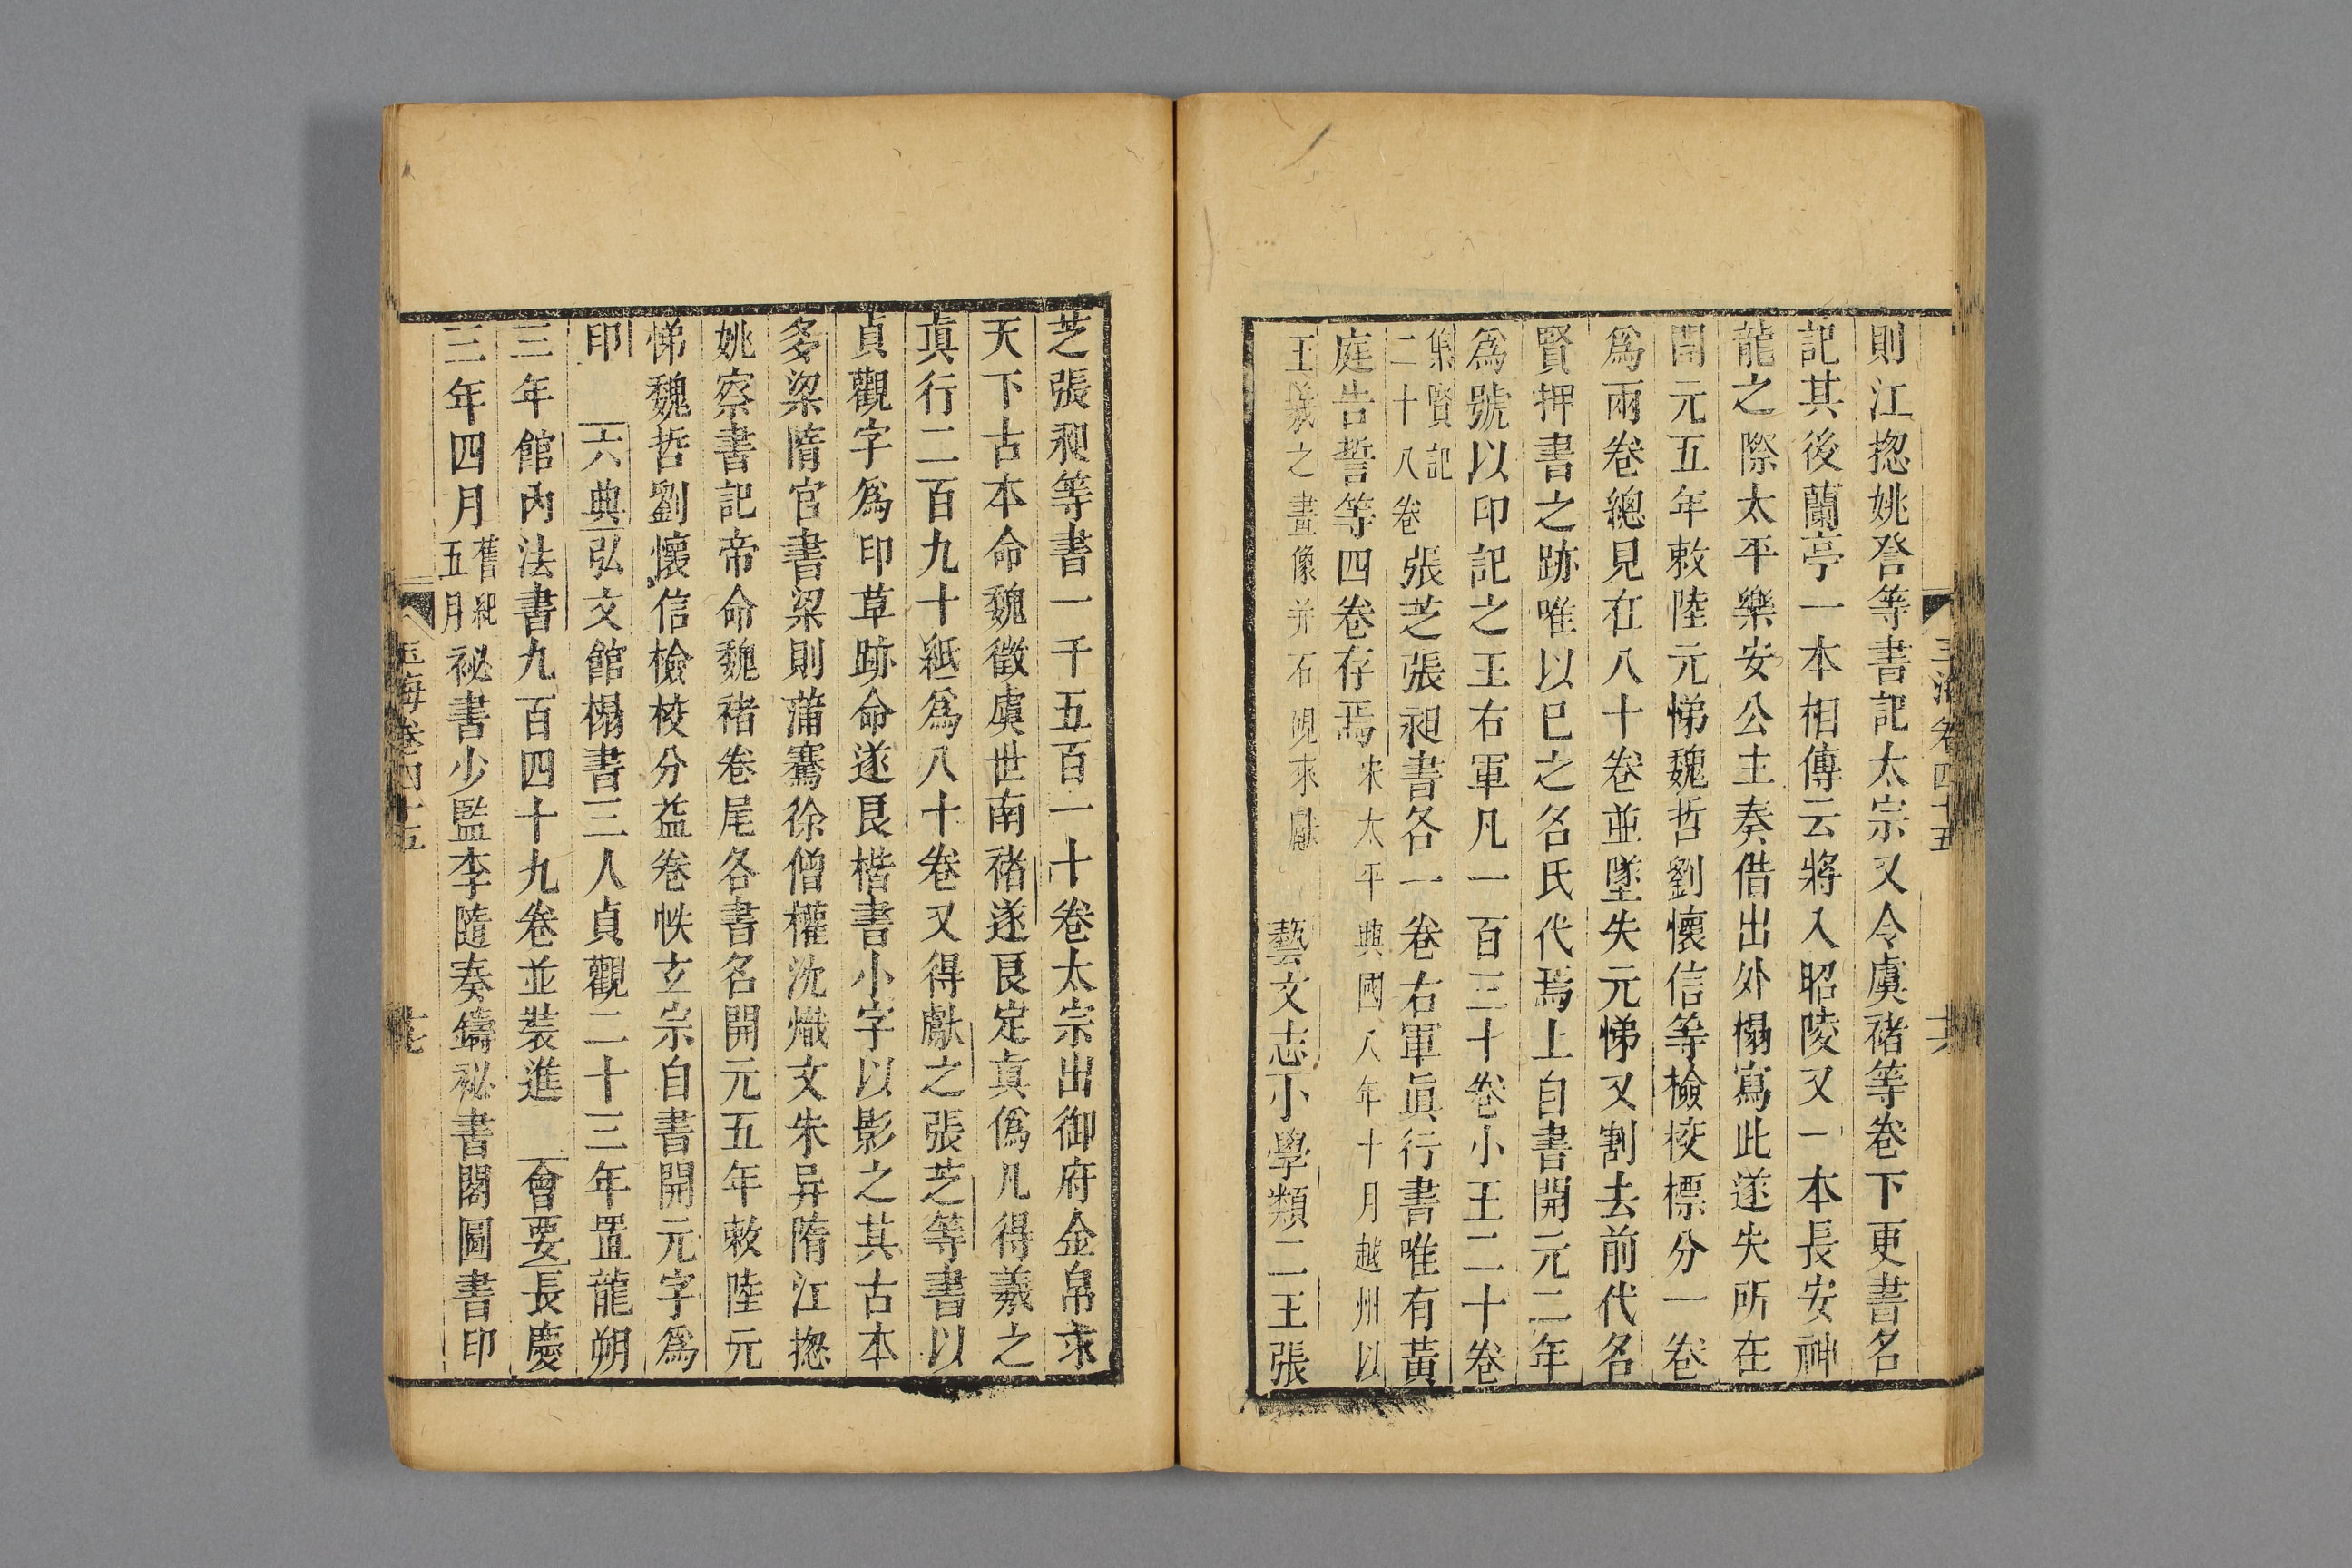 玉海卷四十五
則江揔姚詧等書記太宗又令虞褚等卷下更書名
記其後蘭亭一本相傳云將入昭陵又一本長安神
龍之際太平樂安公主奏借出外榻寫此遂失所在
開元五年敕陸元悌魏哲劉懷信等檢校標分一卷
爲兩卷總見在八十卷並墜失元悌又割去前代名
賢押書之跡唯以已之名氏代焉上自書開元二年
爲號以印記之王右軍凡一百三十卷小王二十卷
集賢記二十八卷張芝張昶書各一卷右軍眞行書唯有黃
庭告誓等四卷存焉宋太平興國八年十月越州以
王羲之畫像并石硯來獻 藝文志小學類二王張
芝張昶等書一千五百一十卷太宗出御府金帛求
天下古本命魏徵虞世南褚遂良定眞僞凡得羲之
眞行二百九十紙爲八十卷又得獻之張芝等書以
貞觀字爲印草跡命遂良楷書小字以影之其古本
多梁隋官書梁則蒲騫徐僧權沈熾文朱异隋江揔
姚察書記帝命魏褚卷尾各書名開元五年敕陸元
悌魏哲劉懷信檢校分益卷帙玄宗自書開元字爲
印 六典弘文館榻書三人貞觀二十三年置龍朔
三年館內法書九百四十九卷並裝進 會要長慶
三年四月舊紀五月祕書少監李隨奏鑄祕書閣圖書印
玉海卷四十五